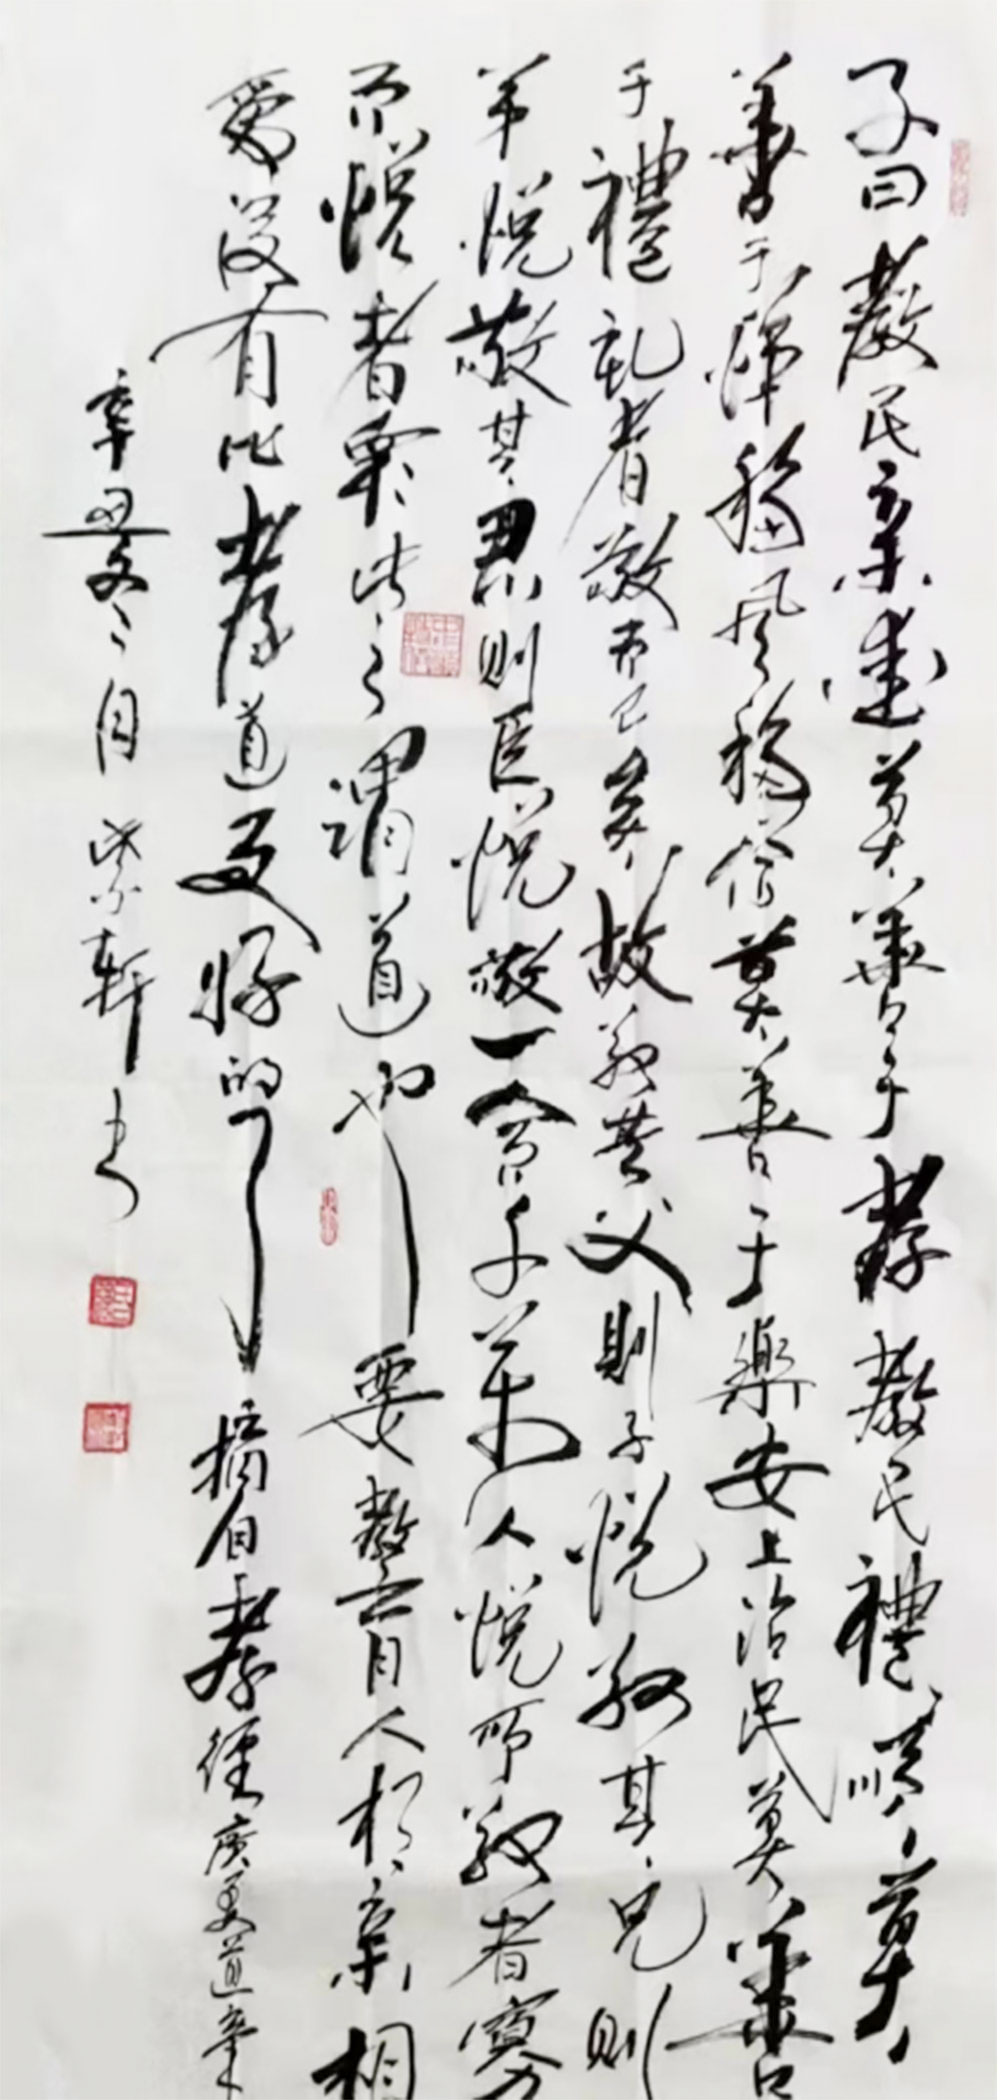 子曰教民亲愛莫善于孝教民禮順莫
善于悌移风移俗莫善于樂安上治民莫善
于禮礼者敬而已矣故敬其父則子悦敬其兄則
弟悦敬其君則臣悦敬一人而千萬人悦所敬者寡
而悦者衆此之謂道也要教育人相亲相
愛没有比孝道更好的了摘自孝經廣要道章
辛丑冬月紫軒书